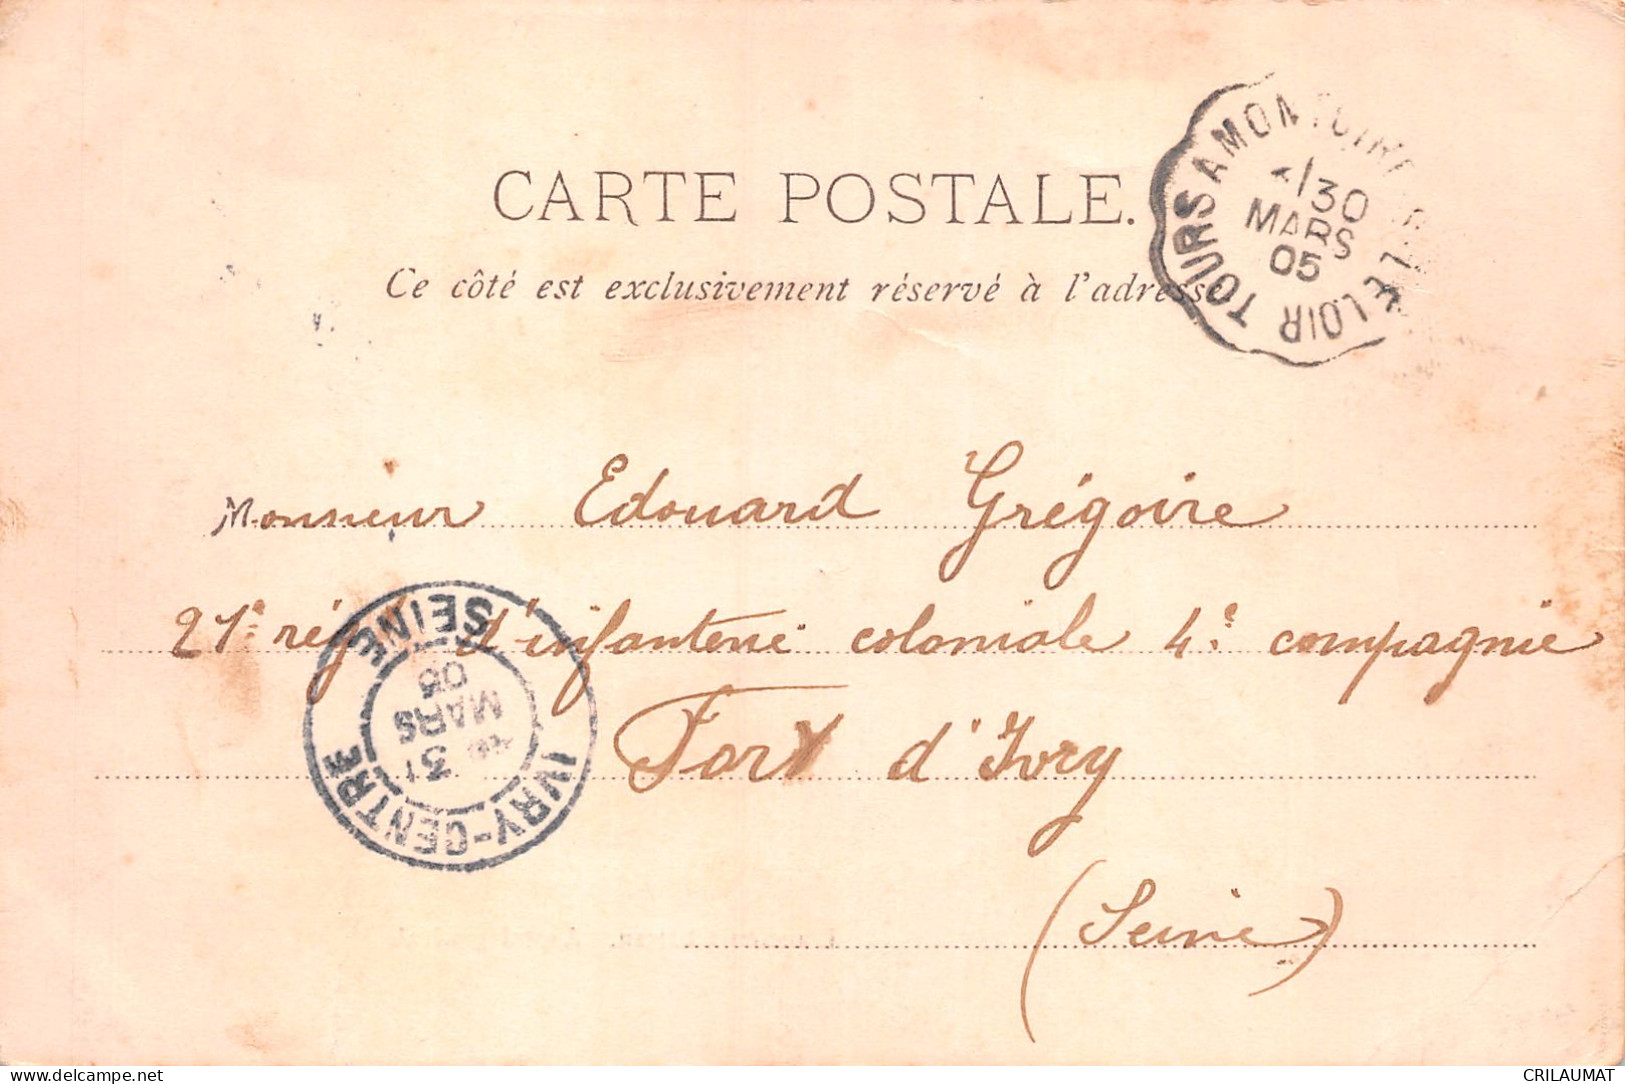 CARTE POSTALE.
Ce côté est exclusivement réservé à l'adresse
TOURS A MONTOIRE SUR LE LOIR
30
MARS
05
Monsieur Edouard Grégoire
21e rég d'infanterie coloniale 4e compagnie
Fort d'Ivry
(Seine)
IVRY-CENTRE
SEINE
31
MARS
05
delcampe.net
CRILAUMAT